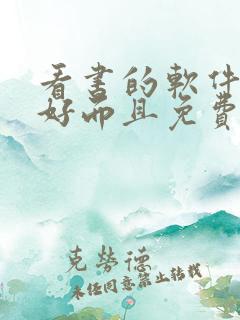 看书的軟件
好而且免費
克勞德
未任同意禁止转载